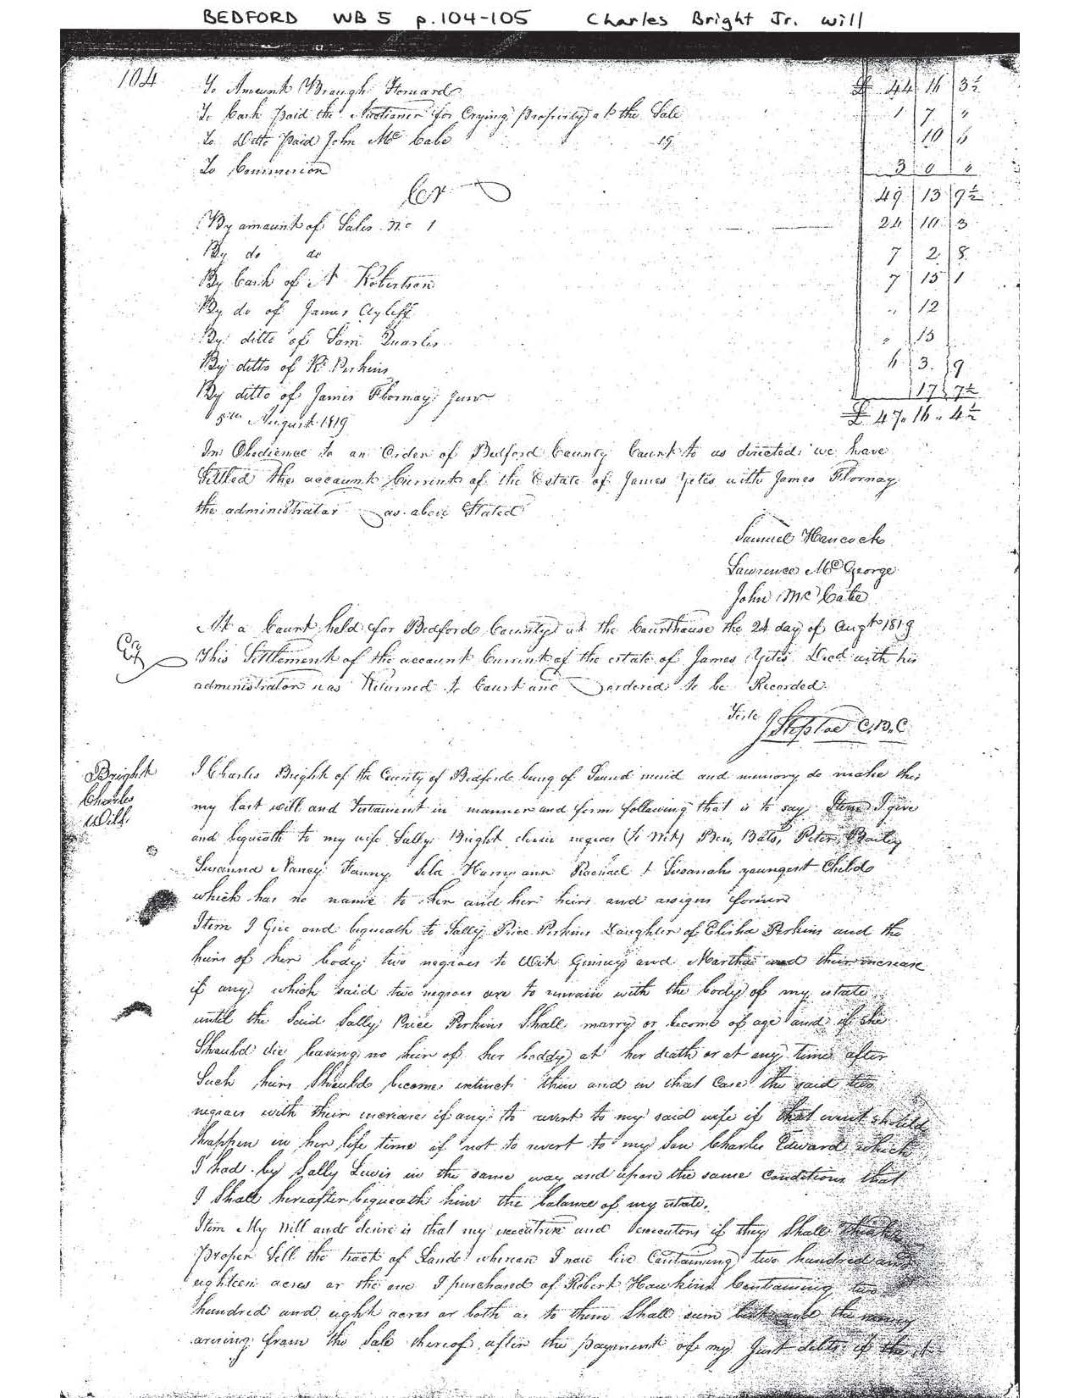 BEDFORD WB 5 p.104-105 Charles Bright Jr. will
104
To Amount Brough Forward £ 44 16 3½
To Cash paid the Auctioner for Crying Property at the Sale 1 7 "
To Ditto paid John McCabe 10 6
To Commission 3 0 "
Cr 49 13 9½
By amount of Sales No 1 24 10 3
By do do 7 2 8
By Cash of A Robertson 7 15 1
By do of James Ayliff " 12
By ditto of Sam Quarles " 15
By ditto of Perkins 6 3 9
By ditto of James Flornay Junr 17 7½
5th August 1819 £ 47. 16. 4½
In Obedience to an Order of Bedford County Court to us directed we have
Settled the account Current of the Estate of James Yetes with James Flornay
the administrator as above Stated
Samuel Hancock
Lawrence McGeorge
John McCabe
At a Court held for Bedford County at the Courthouse the 24 day of Augt 1819
This Settlement of the account Current of the estate of James Yetes Decd with his
administrator was Returned to Court and ordered to be Recorded
Teste
J Steptoe C.B.C
Bright
Charles
Will.
I Charles Bright of the County of Bedford being of Sound mind and memory do make this
my last will and Testament in manner and form following that is to say Item I give
and bequeath to my wife Sally Bright eleven negroes (To Wit) Ben, Bats, Peter, Bailey
Susanna Nancy Fanny Sila Harry ann Rachael & Susanahs youngest Child
which has no name to her and her heirs and assigns forever
Item I Give and bequeath to Sally Price Perkins Daughter of Elisha Perkins and the
heirs of her body two negroes to Wit Quincy and Martha and their increase
if any which said two negroes are to remain with the body of my estate
until the Said Sally Price Perkins Shall marry or become of age and if she
Should die leaving no heir of her boddy at her death or at any time after
Such heirs Should become extinct then and in that Case the said two
negroes with their increase if any to revert to my said wife if that event should
happen in her life time if not to revert to my Son Charles Edward which
I had by Sally Lewis in the same way and upon the same conditions that
I Shall hereafter bequeath him the balance of my estate.
Item My Will and desire is that my executrix and Executors if they Shall think
proper Sell the tract of Land whereon I now live Containing two hundred and
eighteen acres or the one I purchased of Robert Hawkins Containing two
hundred and eight acres or both as to them Shall seem best and the money
arising from the Sale thereof after the payment of my Just debts if the